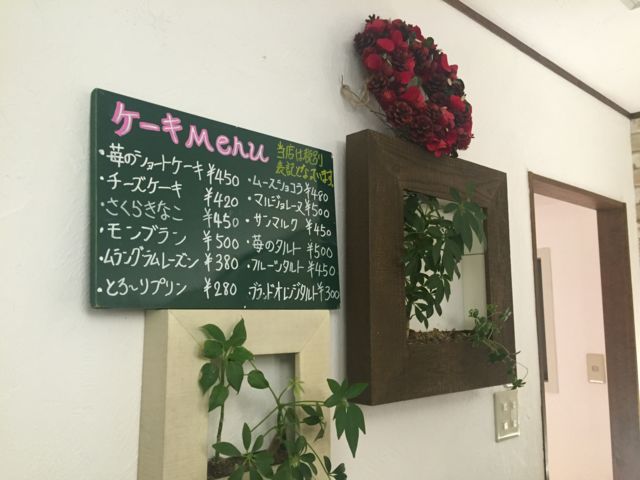 ケーキMenu
当店は税別り
表記となっています。
・苺のショートケーキ ¥450
・チーズケーキ ¥420
さくらきなこ ¥450
・モンブラン ¥500
・ムラングラムレーズン ¥380
・とろ〜りプリン ¥280
・ムースショコラ ¥480
・マルジョレーヌ ¥500
・サンマルク ¥450
・苺のタルト ¥500
・フルーツタルト ¥450
・ブラッドオレンジタルト ¥300